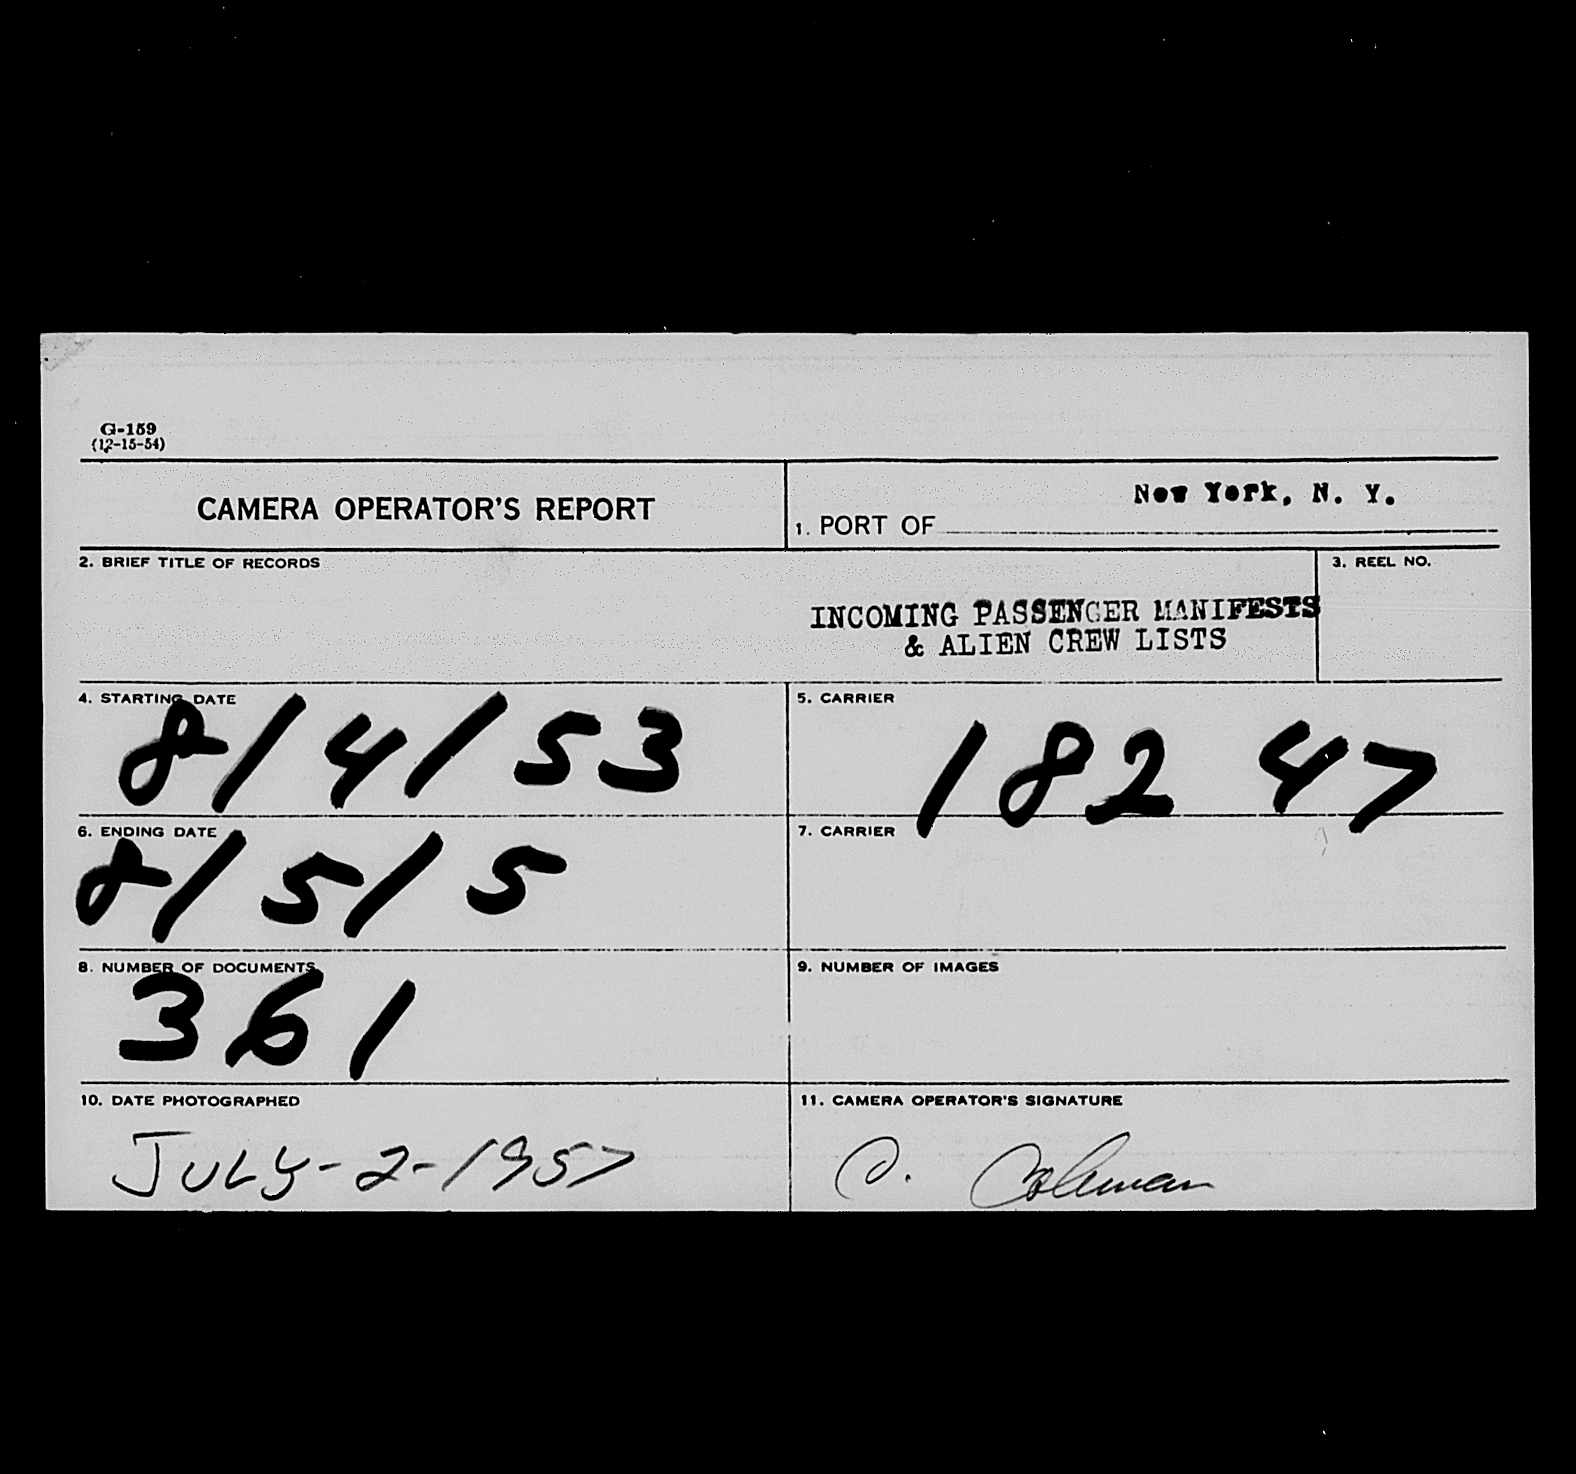 G-159
(12-15-54)
CAMERA OPERATOR'S REPORT
1. PORT OF New York, N. Y.
2. BRIEF TITLE OF RECORDS
3. REEL NO.
INCOMING PASSENGER MANIFESTS
& ALIEN CREW LISTS
4. STARTING DATE
8/4/53
5. CARRIER
182 47
6. ENDING DATE
8/5/5
7. CARRIER
8. NUMBER OF DOCUMENTS
361
9. NUMBER OF IMAGES
10. DATE PHOTOGRAPHED
JULY-2-1957
11. CAMERA OPERATOR'S SIGNATURE
Coleman